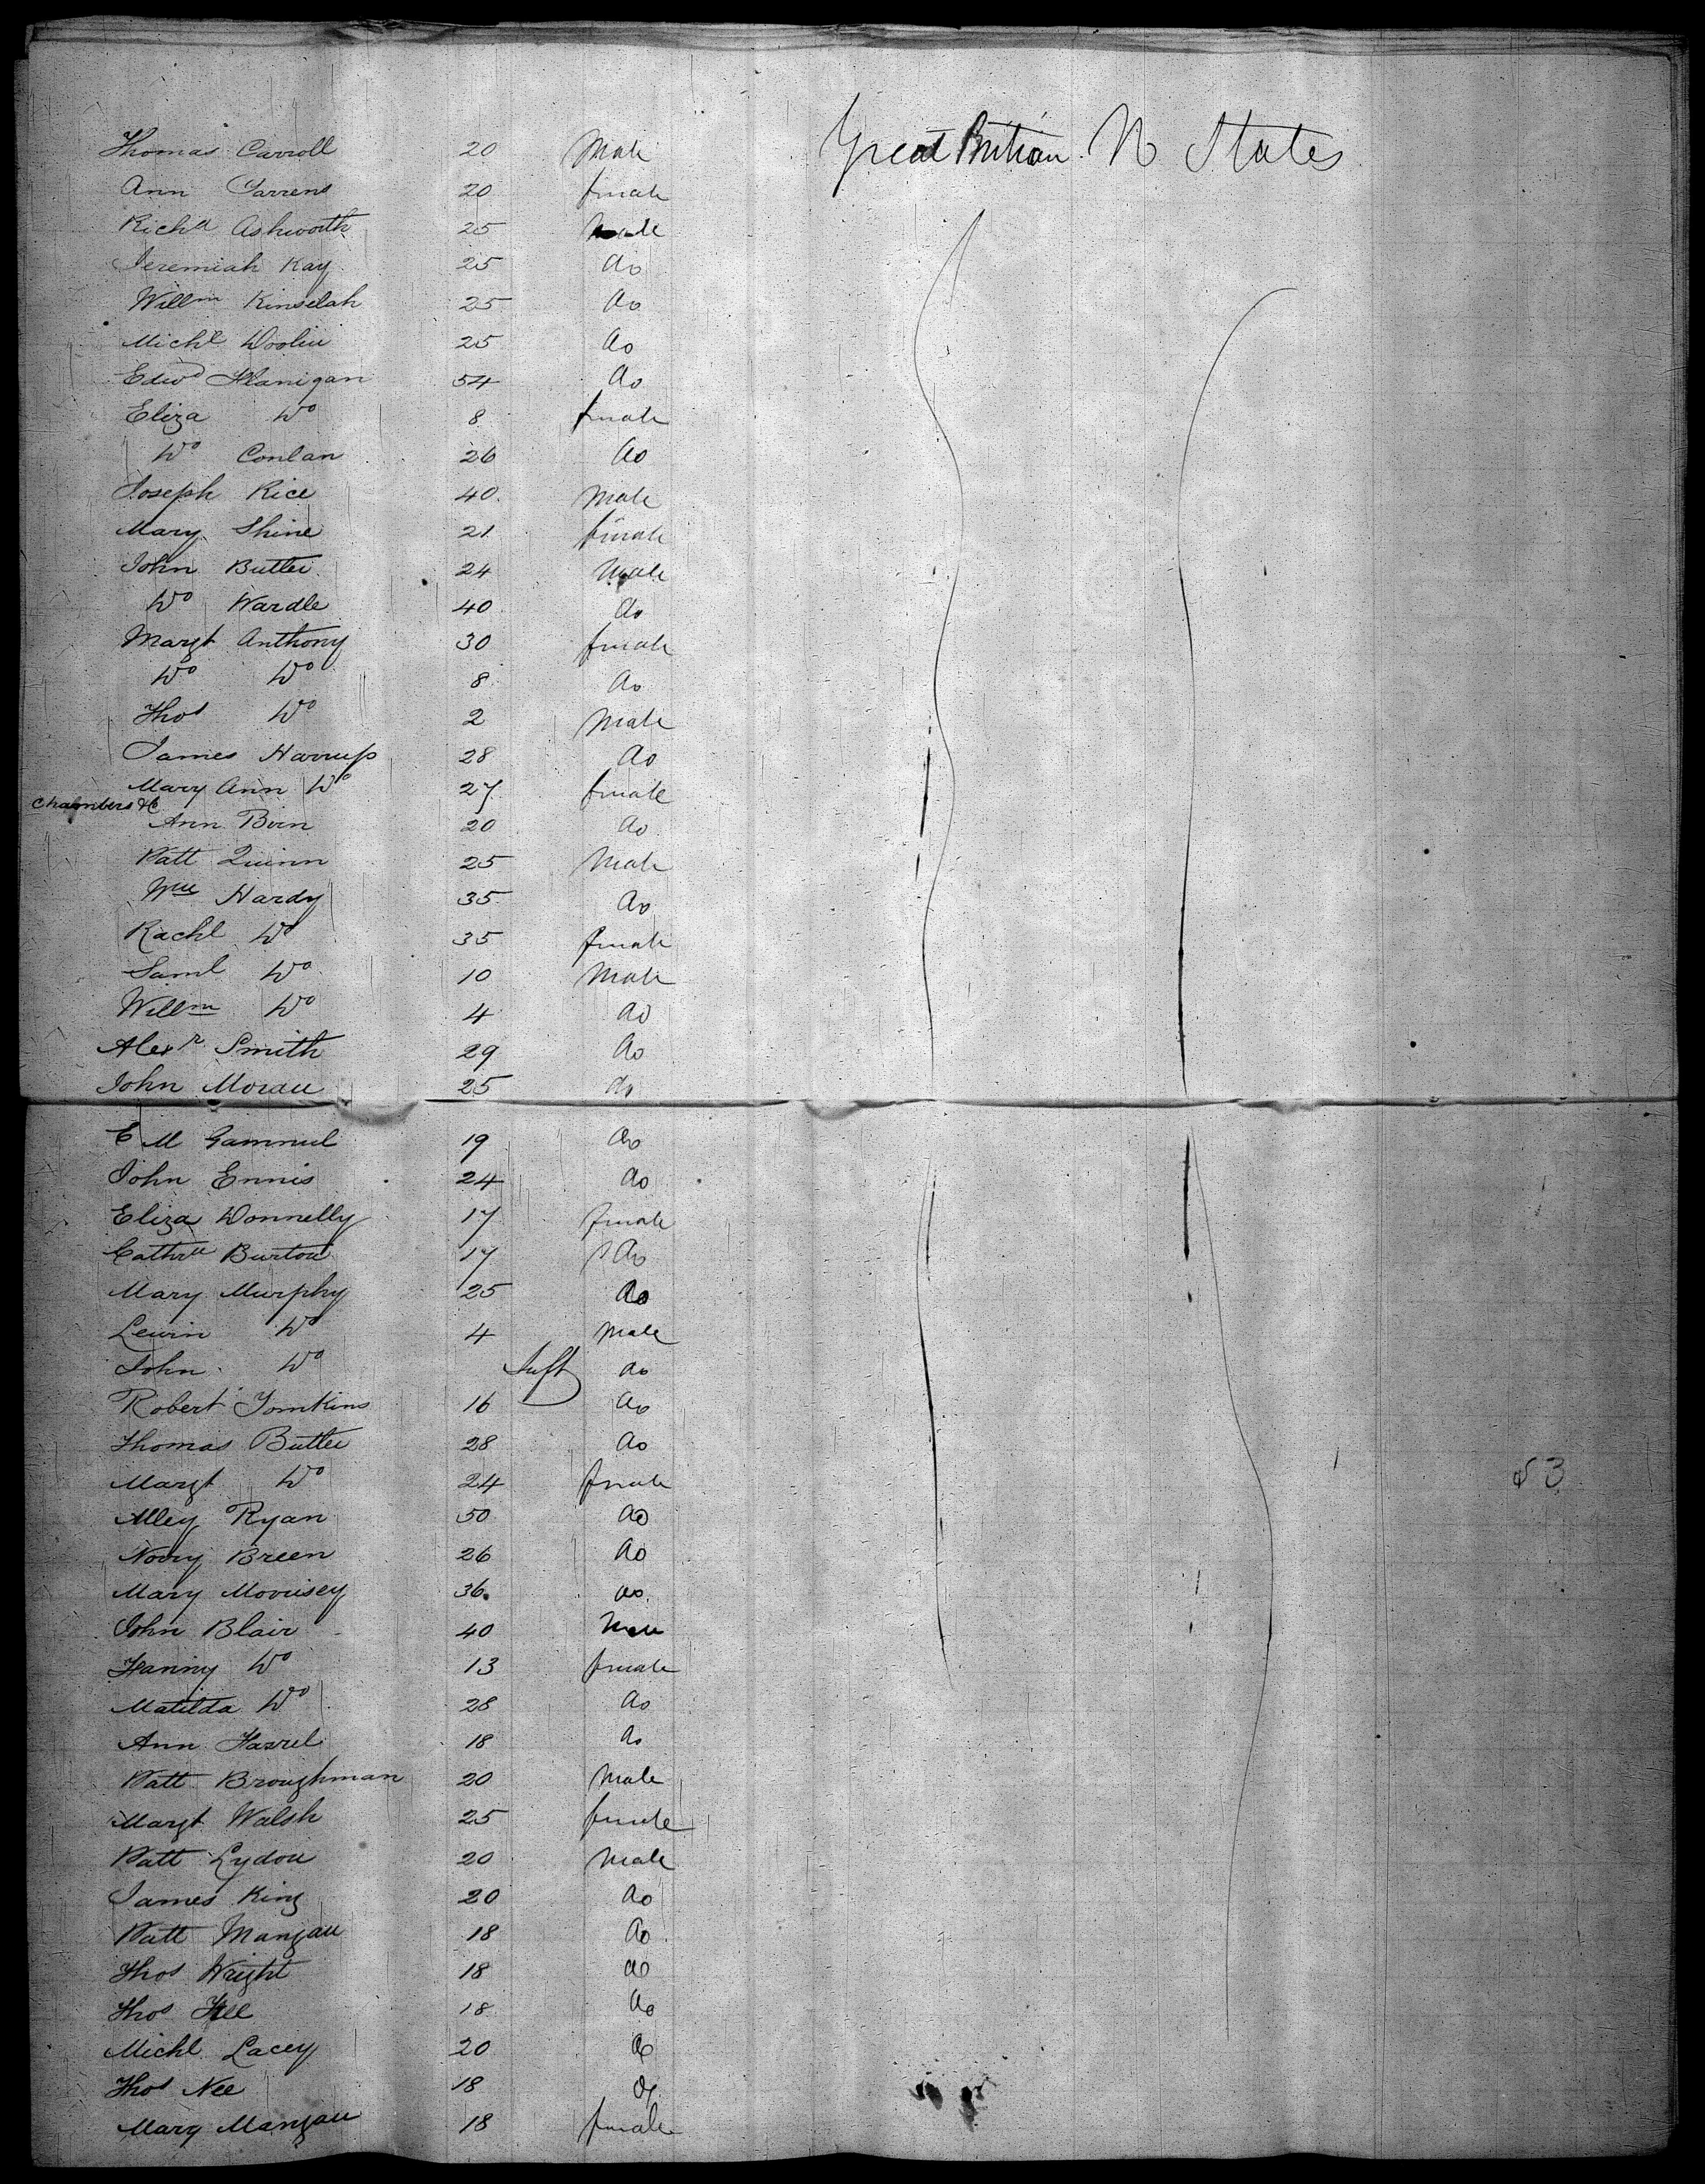 Thomas Carroll 20 Male Great Britian U States
Ann Farrens 20 female
Richd Ashworth 25 Male
Jeremiah Kay 25 do
Willm Kinselah 25 do
Michl Doolin 25 do
Edwd Flanigan 54 do
Eliza Do 8 female
Do Conlan 26 do
Joseph Rice 40 Male
Mary Shine 21 female
John Butler 24 Male
Do Wardle 40 do
Margt Anthony 30 female
Do Do 8 do
Thos Do 2 Male
James Harrup 28 do
Mary Ann Do 27 female
Chambers &c
Ann Birn 20 do
Patt Quinn 25 Male
Wm Hardy 35 do
Rachl Do 35 female
Saml Do 10 Male
Willm Do 4 do
Alexr Smith 29 do
John Moran 25 do
E M Gammul 19 do
John Ennis 24 do
Eliza Donnelly 17 female
Cathre Burton 17 do
Mary Murphy 25 do
Lewin Do 4 Male
John Do Inft do
Robert Tomkins 16 do
Thomas Butler 28 do
Margt Do 24 female
Alley Ryan 50 do 53
Norry Breen 26 do
Mary Morrisey 36 do
John Blair 40 Male
Fanny Do 13 female
Matilda Do 28 do
Ann Farrel 18 do
Patt Broughman 20 Male
Margt Walsh 25 female
Patt Lydon 20 Male
James King 20 do
Patt Mangan 18 do
Thos Wright 18 do
Thos 18 do
Michl Lacey 20 do
Thos Nee 18 do
Mary Mangan 18 female